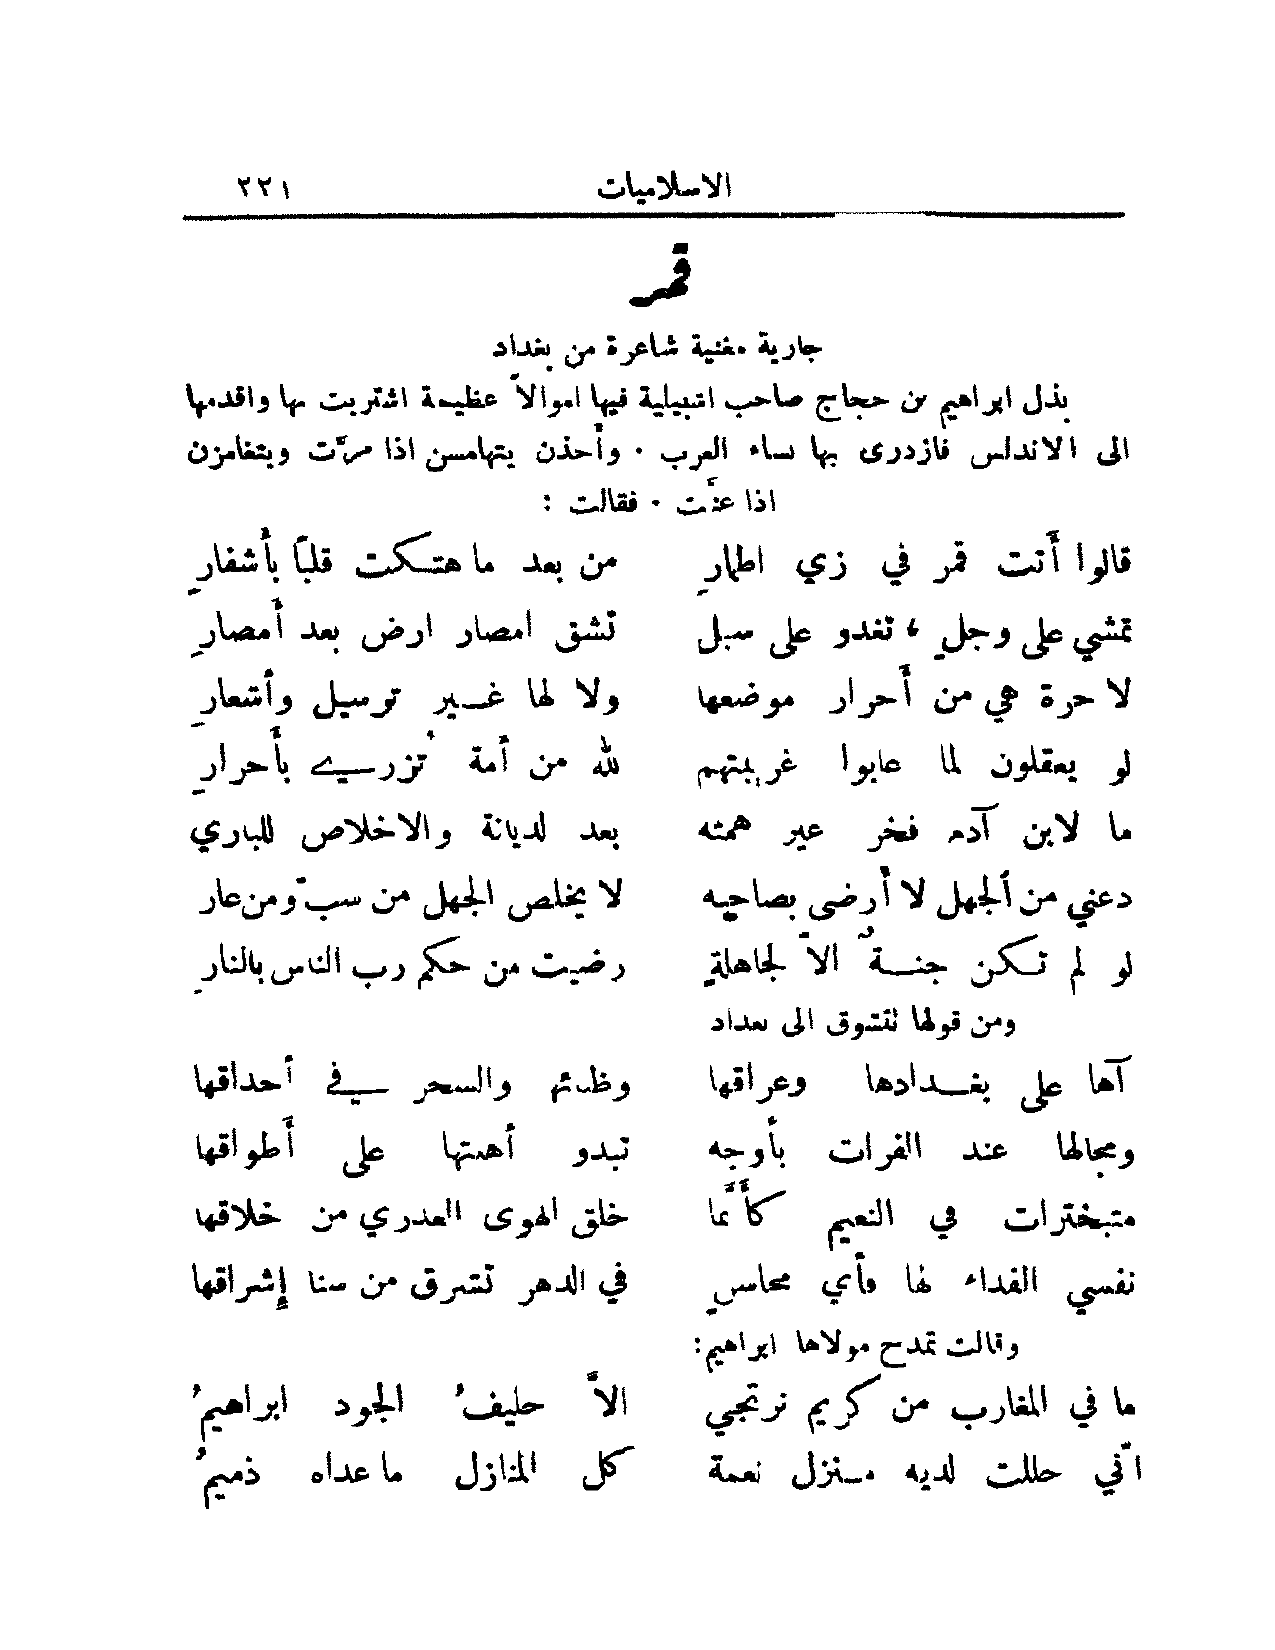 الاسلاميات ٢٢١
قمر
جارية مغنية شاعرة من بغداد
بذل ابراهيم بن حجاج صاحب اشبيلية فيها اموالاً عظيمة اشتريت بها واقدمها
الى الاندلس فازدرى بها نساء العرب . وأخذن يتهامسن اذا مرَّت ويتغامزن
اذا غنَّت . فقالت :
قالوا أَتت قمر في زي اطمارِ من بعد ما هتكت قلبًا بأشفارِ
تمشي على وجلٍ ، تغدو على سبل تشق امصار ارض بعد أَمصارِ
لا حرة هي من أَحرار موضعها ولا لها غير ترسيل وأشعارِ
لو يعقلون لما عابوا غريبتهم لله من أَمة تُزري بأَحرارِ
ما لابن آدم فخر غير همته بعد لديانة والاخلاص للباري
دعني من ألجهل لا أرضى بصاحبه لا يخلص الجهل من سبّ ومن عار
لو لم تكن جنةٌ الاَّ لجاهلةٍ رضيت من حكم رب الناس بالنارِ
ومن قولها تتشوق الى بغداد
آها على بغدادها وعراقها وظبائها والسحر في أحداقها
ومجالها عند الفرات بأوجه تبدو أهلتها على أَطواقها
متبخترات في النعيم كأَنَّما خلق الهوى العذري من خلاقها
نفسي الفداء لها فأي محاسنٍ في الدهر تشرق من سنا إشراقها
وقالت تمدح مولاها ابراهيم:
ما في المغارب من كريم نرتجي الاَّ حليفُ الجود ابراهيمُ
انّي حللت لديه منزل نعمة كل المنازل ما عداه ذميمُ